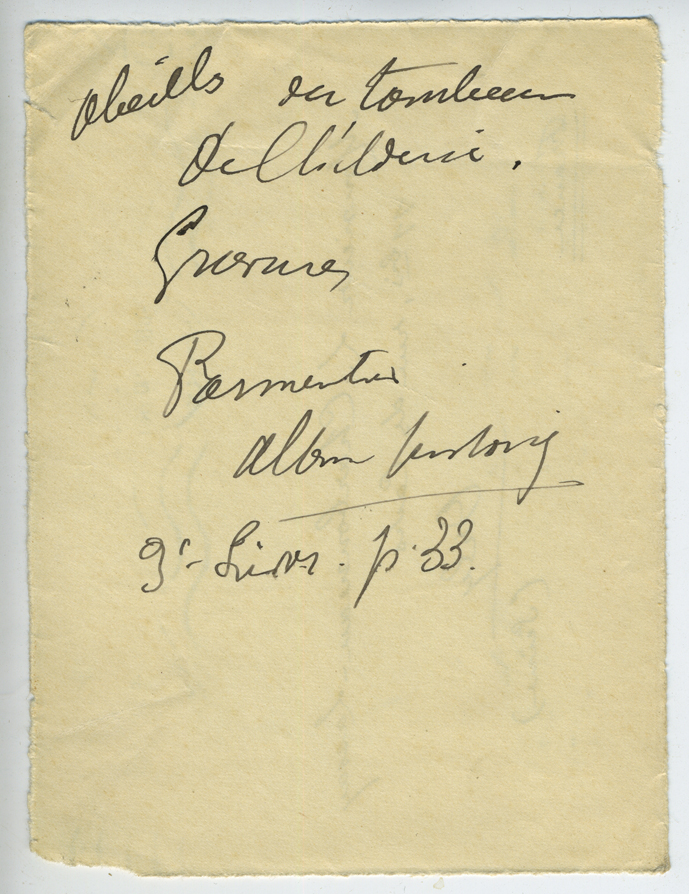 Abeilles du tombeau
de Childéric.
Gravures
Parmentier
album historiq
9e Livr. p. 33.